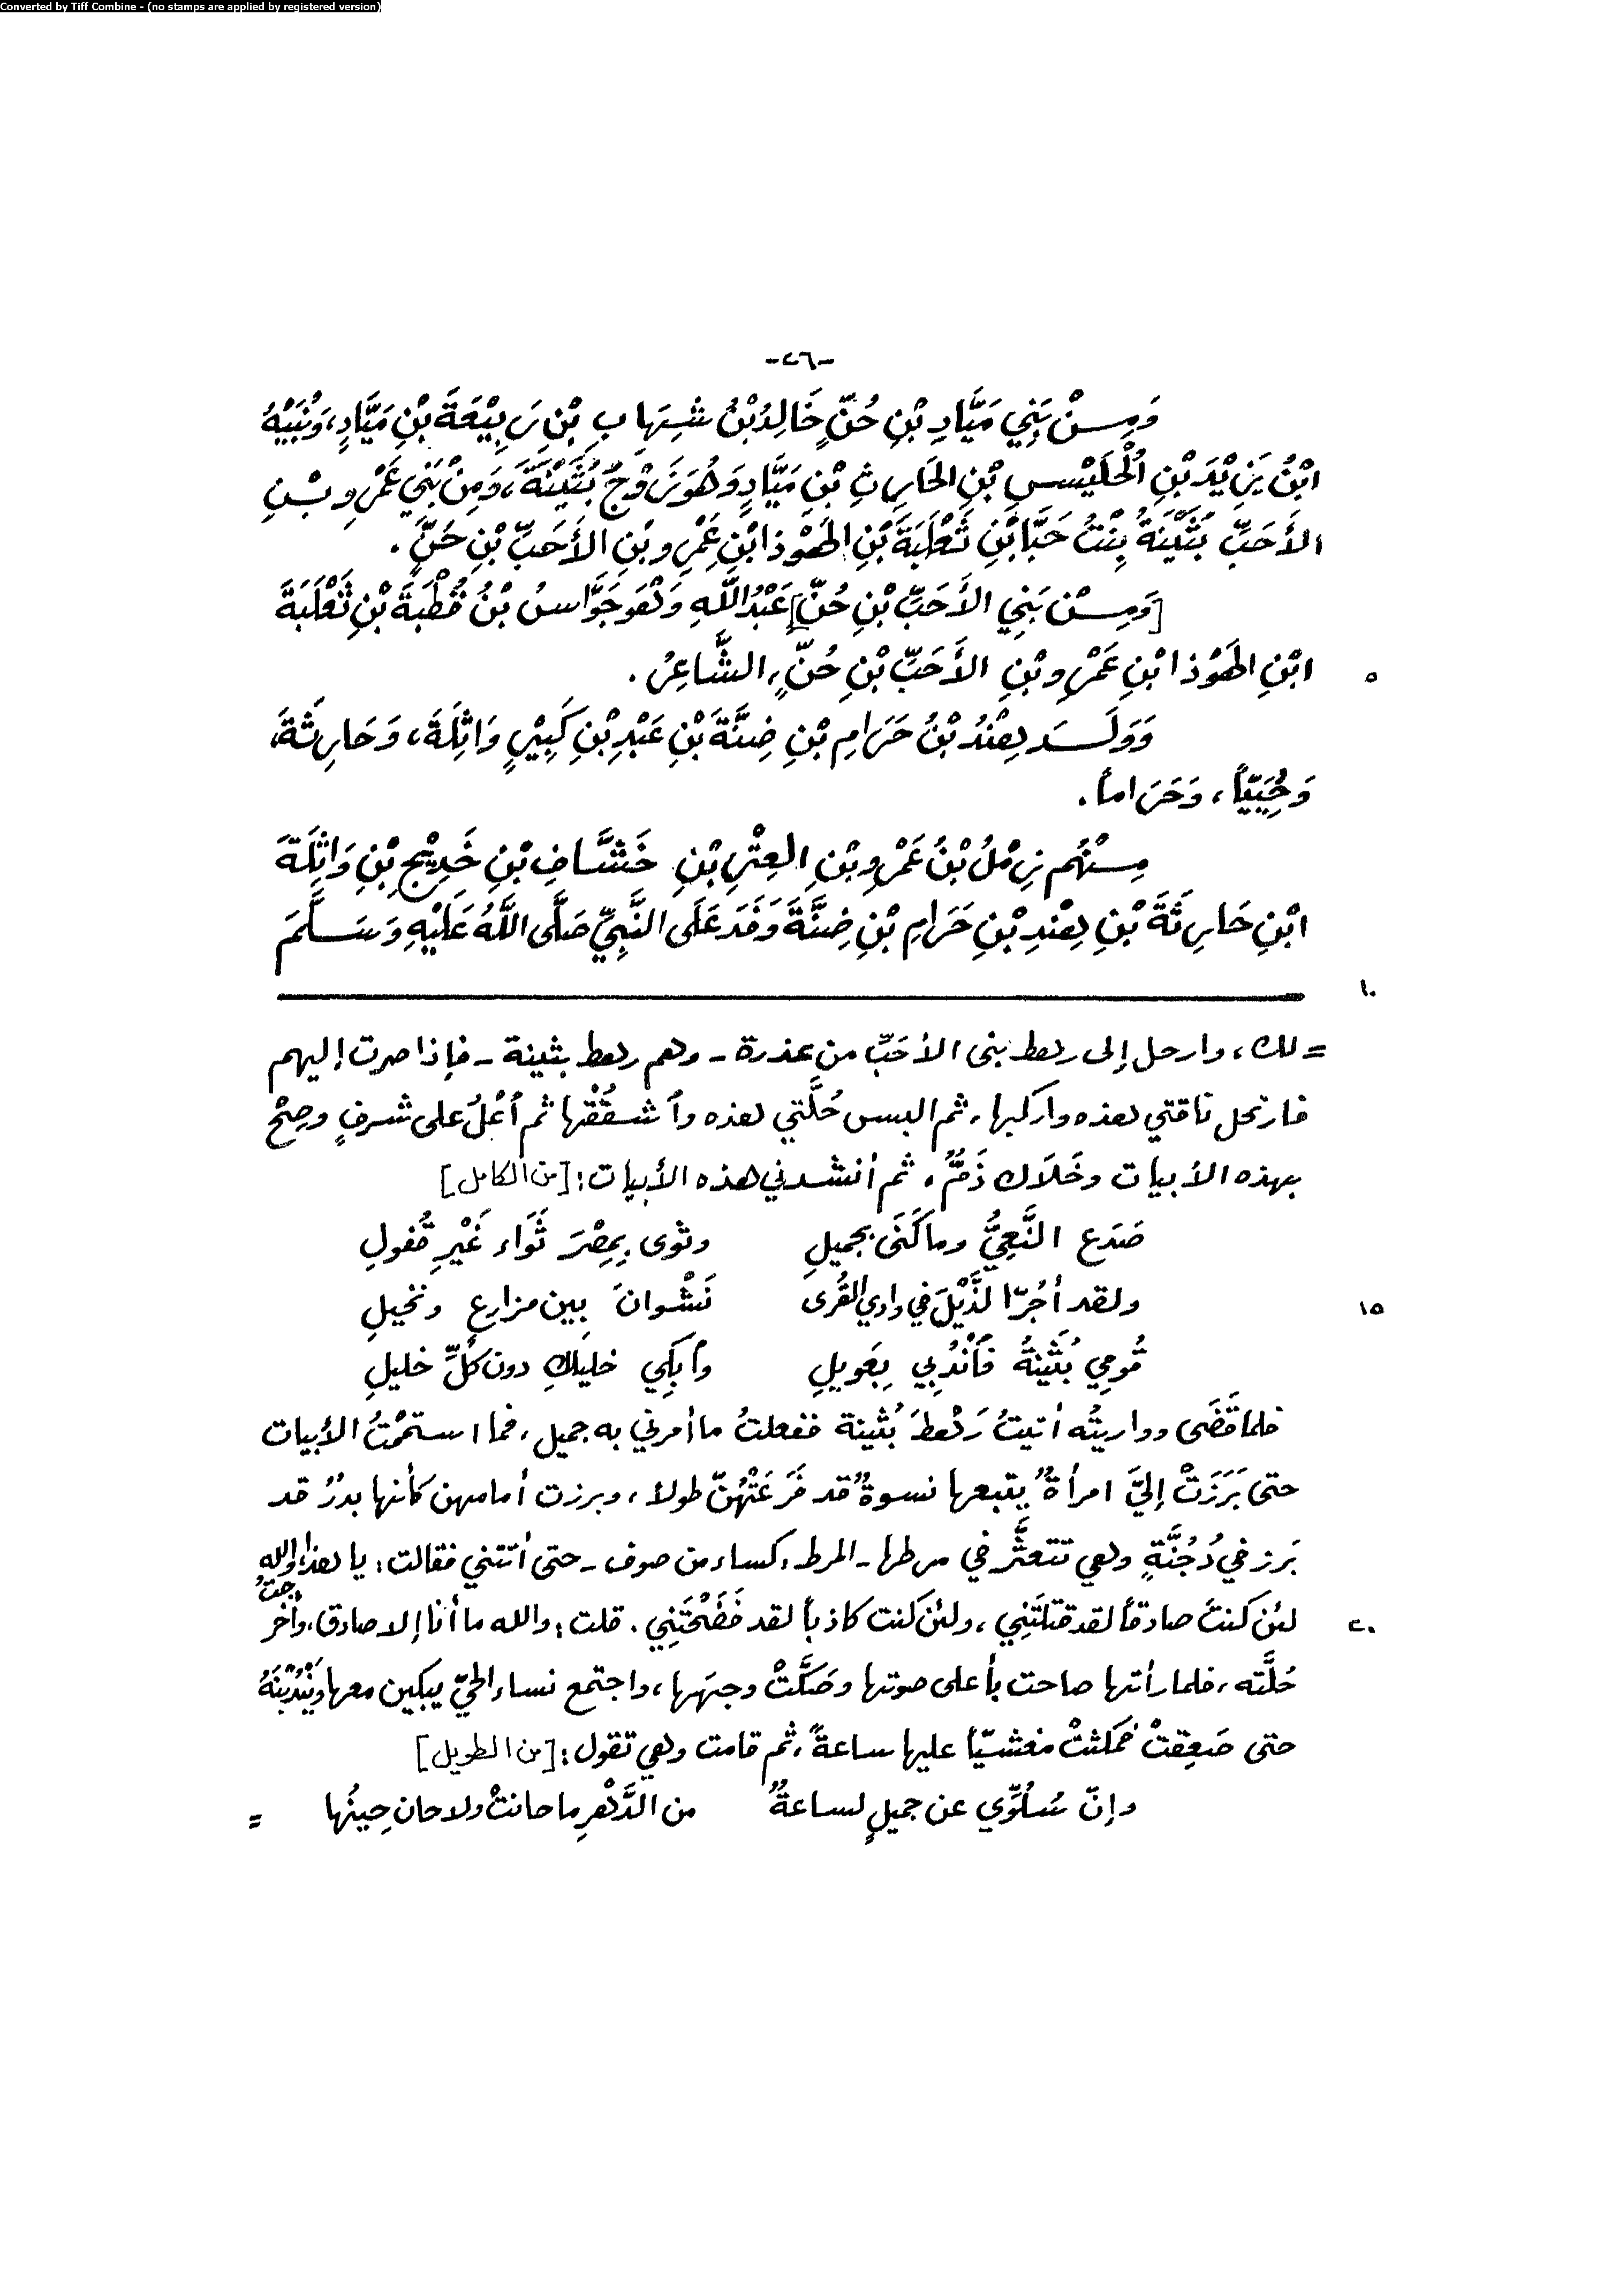 Converted by Tiff Combine - (no stamps are applied by registered version)
-٢٦-
وَمِنْ بَنِي مَيَّادِ بْنِ حُنٍّ خَالِدُ بْنُ شِهَابِ بْنِ رَبِيْعَةَ بْنِ مَيَّادٍ، وَنُبَيْهُ
ابْنُ يَزِيْدَ بْنِ الْحُلَيْسِ بْنِ الحَارِثِ بْنِ مَيَّادٍ وَهُوَ زَوْجُ بُثَيْنَةَ، وَمِنْ بَنِي عَمْرِو بْنِ
الأَحَبِّ بُثَيْنَةُ بِنْتُ حَبَّا بْنِ ثَعْلَبَةَ بْنِ الهَوْذا بْنِ عَمْرِو بْنِ الأَحَبِّ بْنِ حُنٍّ.
[وَمِنْ بَنِي الأَحَبِّ بْنِ حُنٍّ] عَبْدُ اللَّهِ وَهُوَ جَوَّاسُ بْنُ قُطْبَةَ بْنِ ثَعْلَبَةَ
ابْنِ الهَوْذا بْنِ عَمْرِو بْنِ الأَحَبِّ بْنِ حُنٍّ، الشَّاعِرُ.
٥
وَوَلَدَ هِنْدُ بْنُ حَرَامِ بْنِ ضِنَّةَ بْنِ عَبْدِ بْنِ كَبِيْرٍ وَاثِلَةَ، وَحَارِثَةَ،
وَحُيَيّاً، وَحَرَاماً.
مِنْهُم زِمْلُ بْنُ عَمْرِو بْنِ العِتْرِ بْنِ خَشَّافِ بْنِ خَدِيْجِ بْنِ وَاثِلَةَ
ابْنِ حَارِثَةَ بْنِ هِنْدِ بْنِ حَرَامِ بْنِ ضِنَّةَ وَفَدَ عَلَى النَّبِيِّ صَلَّى اللَّهُ عَلَيْهِ وَسَلَّمَ
١٠
= لك، وارحل إلى رهط بني الأحَبِّ من عذرة - وهم رهط بثينة - فإذا صرت إليهم
فارتحل ناقتي هذه واركبها، ثم البس حُلَّتي هذه وٱشقُقْها ثم ٱعْلُ على شرفٍ وصِحْ
بهذه الأبيات وخَلَاك ذَمٌّ، ثم أنشدني هذه الأبيات: [من الكامل]
صَدَع النَّعِيُّ وما كَنَى بجميلِ وثوى بِمِصْرَ ثَوَاء غَيْرِ قُفولِ
ولقد أجُرّ الذَّيْلَ في وادي القُرى نَشْوانَ بين مزارعٍ ونخيلِ
١٥
قُومِي بُثَيْنةُ فٱنْدُبِي بِعَويلِ وٱبكِي خليلكِ دون كُلِّ خليلِ
فلما قَضَى وواريتُه أتيتُ رَهْطَ بُثينة ففعلتُ ما أمرني به جميل، فما استممْتُ الأبيات
حتى بَرَزَتْ إليَّ امرأةٌ يتبعها نسوةٌ قد فَرَعَتْهُنّ طولاً، وبرزت أمامهن كأنها بدرٌ قد
بَرز في دُجُنَّةٍ وهي تتعثَّر في مرطها - المرط: كساء من صوف - حتى أتتني فقالت: يا هذا، والله
لئن كنتَ صادقاً لقد قتلتَنِي، ولئن كنت كاذباً لقد فَضَحْتَنِي. قلت: والله ما أنا إلا صادق، وأخرجتُ
٢٠
حُلَّته، فلما رأتها صاحت بأعلى صوتها وصَكَّتْ وجهَها، واجتمع نساء الحيّ يبكين معها ويَنْدُبْنَهُ
حتى صَعِقتْ فمكثتْ مغشيّاً عليها ساعةً، ثم قامت وهي تقول: [من الطويل]
وإنّ سُلُوِّي عن جميلٍ لساعةٌ من الدَّهْرِ ما حانتْ ولا حان حِينُها =